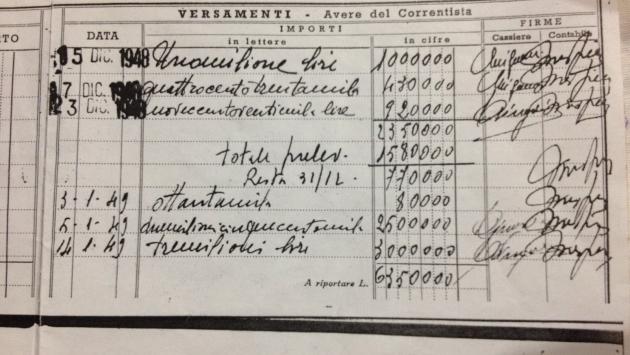 VERSAMENTI - Avere del Correntista
DATA IMPORTI FIRME
in lettere in cifre Cassiere Contabile
15 DIC. 1948 Unomilione lire 1000000
17 DIC. 1948 quattrocentotrentamila 430000
23 DIC. 1948 novecentoventimila lire 920000
2350000
totale prelev. 1580000
Resta 31/12 770000
3-1-49 ottantamila 80000
5-1-49 duemilionicinquecentomila 2500000
14-1-49 tremilioni lire 3000000
A riportare L. 6350000